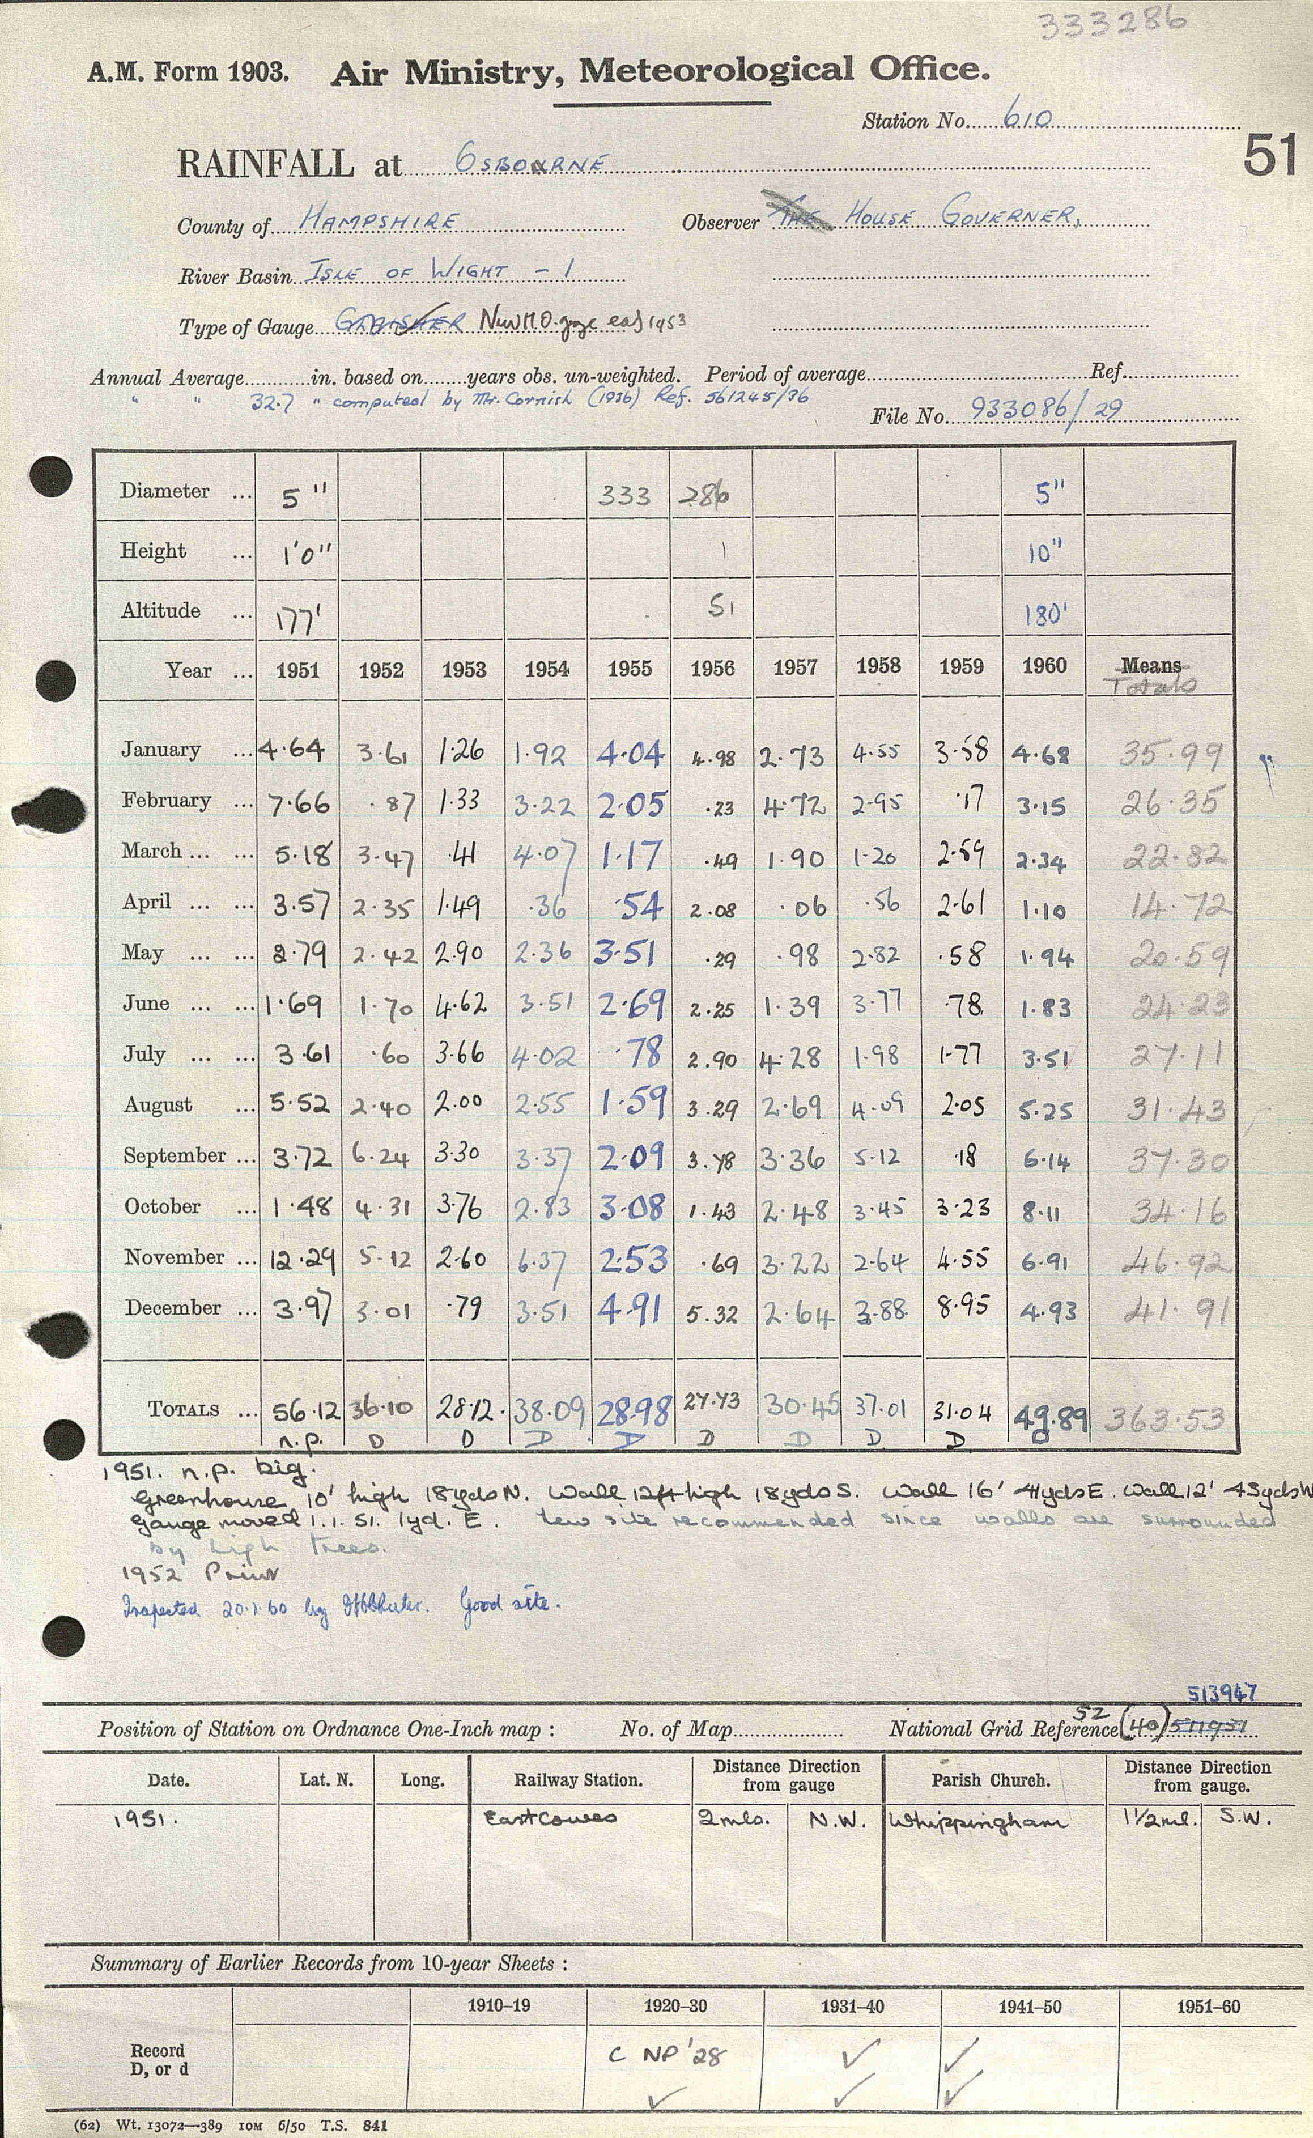 333286
A.M. Form 1903. Air Ministry, Meteorological Office.
Station No. 610
51
RAINFALL at OSBORNE
County of HAMPSHIRE Observer THE HOUSE GOVERNER,
River Basin ISLE OF WIGHT - 1
Type of Gauge New M.O. gge 1953
Annual Average in. based on years obs. un-weighted. Period of average Ref.
" " 32.7 " computed by Mr. Cornish (1936) Ref. 561245/36
File No. 933086/29
Diameter ... 5" 333 286 5"
Height ... 1'0" 1 10"
Altitude ... 177' 51 180'
Year ... 1951 1952 1953 1954 1955 1956 1957 1958 1959 1960 Means
Totals
January ... 4.64 3.61 1.26 1.92 4.04 4.98 2.73 4.55 3.58 4.68 35.99
February ... 7.66 .87 1.33 3.22 2.05 .23 4.72 2.95 .17 3.15 26.35
March ... ... 5.18 3.47 .41 4.07 1.17 .49 1.90 1.20 2.59 2.34 22.82
April ... ... 3.57 2.35 1.49 .36 .54 2.08 .06 .56 2.61 1.10 14.72
May ... ... 2.79 2.42 2.90 2.36 3.51 .29 .98 2.82 .58 1.94 20.59
June ... ... 1.69 1.70 4.62 3.51 2.69 2.25 1.39 3.77 .78 1.83 24.23
July ... ... 3.61 .60 3.66 4.02 .78 2.90 4.28 1.98 1.77 3.51 27.11
August ... 5.52 2.40 2.00 2.55 1.59 3.29 2.69 4.09 2.05 5.25 31.43
September ... 3.72 6.24 3.30 3.37 2.09 3.78 3.36 5.12 .18 6.14 37.30
October ... 1.48 4.31 3.76 2.83 3.08 1.43 2.48 3.45 3.23 8.11 34.16
November ... 12.29 5.12 2.60 6.37 2.53 .69 3.22 2.64 4.55 6.91 46.92
December ... 3.97 3.01 .79 3.51 4.91 5.32 2.64 3.88 8.95 4.93 41.91
TOTALS ... 56.12 36.10 28.12 38.09 28.98 27.73 30.45 37.01 31.04 49.89 363.53
n.p. D D D D D D D D D
1951. n.p. big.
Greenhouse 10' high 18yds N. Wall 12ft high 18yds S. Wall 16' 41yds E. Wall 12' 43yds W
Gauge moved 1.1.51. 1yd. E. New site recommended since walls are surrounded
by high trees.
1952 Print
Inspected 20.1.60 by Good site.
513947
Position of Station on Ordnance One-Inch map : No. of Map National Grid Reference 52 (40) 511951
Date. Lat. N. Long. Railway Station. Distance Direction from gauge Parish Church. Distance Direction from gauge.
1951. East Cowes 2mls. N.W. Whippingham 1½ml. S.W.
Summary of Earlier Records from 10-year Sheets :
1910–19 1920–30 1931–40 1941–50 1951–60
Record
D, or d
C NP '28 ✓ ✓
✓ ✓ ✓
(62) Wt. 13072—389 10M 6/50 T.S. 841